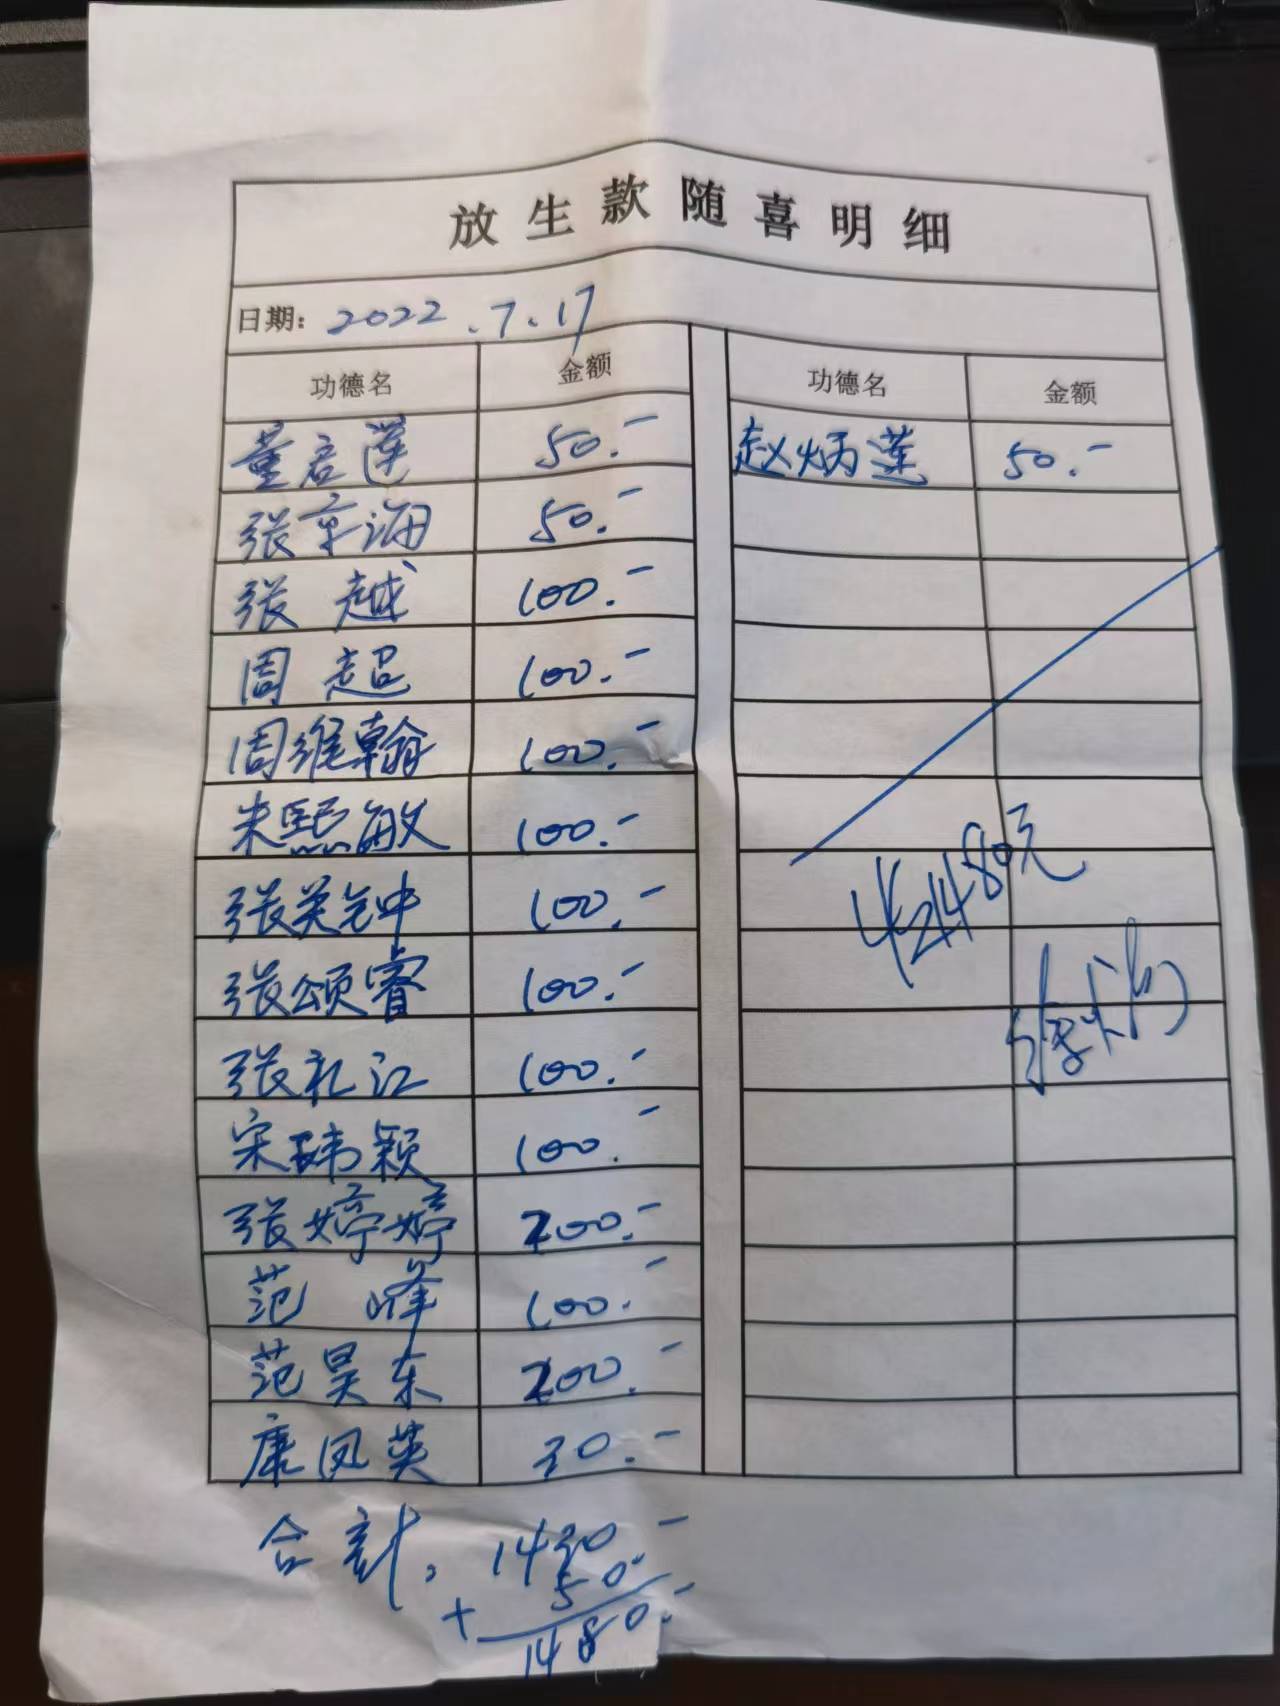 放生款随喜明细
日期: 2022.7.17
功德名 金额 功德名 金额
董启莲 50.- 赵炳莲 50.-
张京海 50.-
张越 100.-
周超 100.-
周维翰 100.-
朱熙敏 100.-
张英钟 100.-
张颂睿 100.-
张礼江 100.-
宋玮颖 100.-
张婷婷 200.-
范峰 100.-
范昊东 200.-
康凤英 30.-
1480元
合计: 1430-
+ 50.-
1480.-